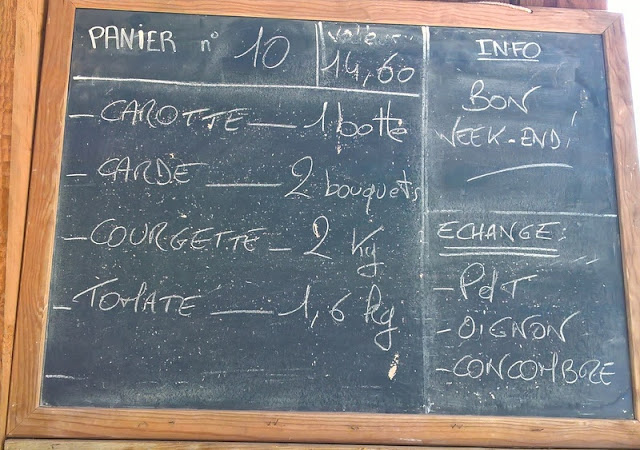 PANIER n° 10
Valeur:
14,60
- CAROTTE — 1 botte
- CARDE — 2 bouquets
- COURGETTE - 2 Kg
- TOMATE — 1,6 kg
-
INFO
BON
WEEK-END!
ECHANGE:
- PdT
- OIGNON
- CONCOMBRE